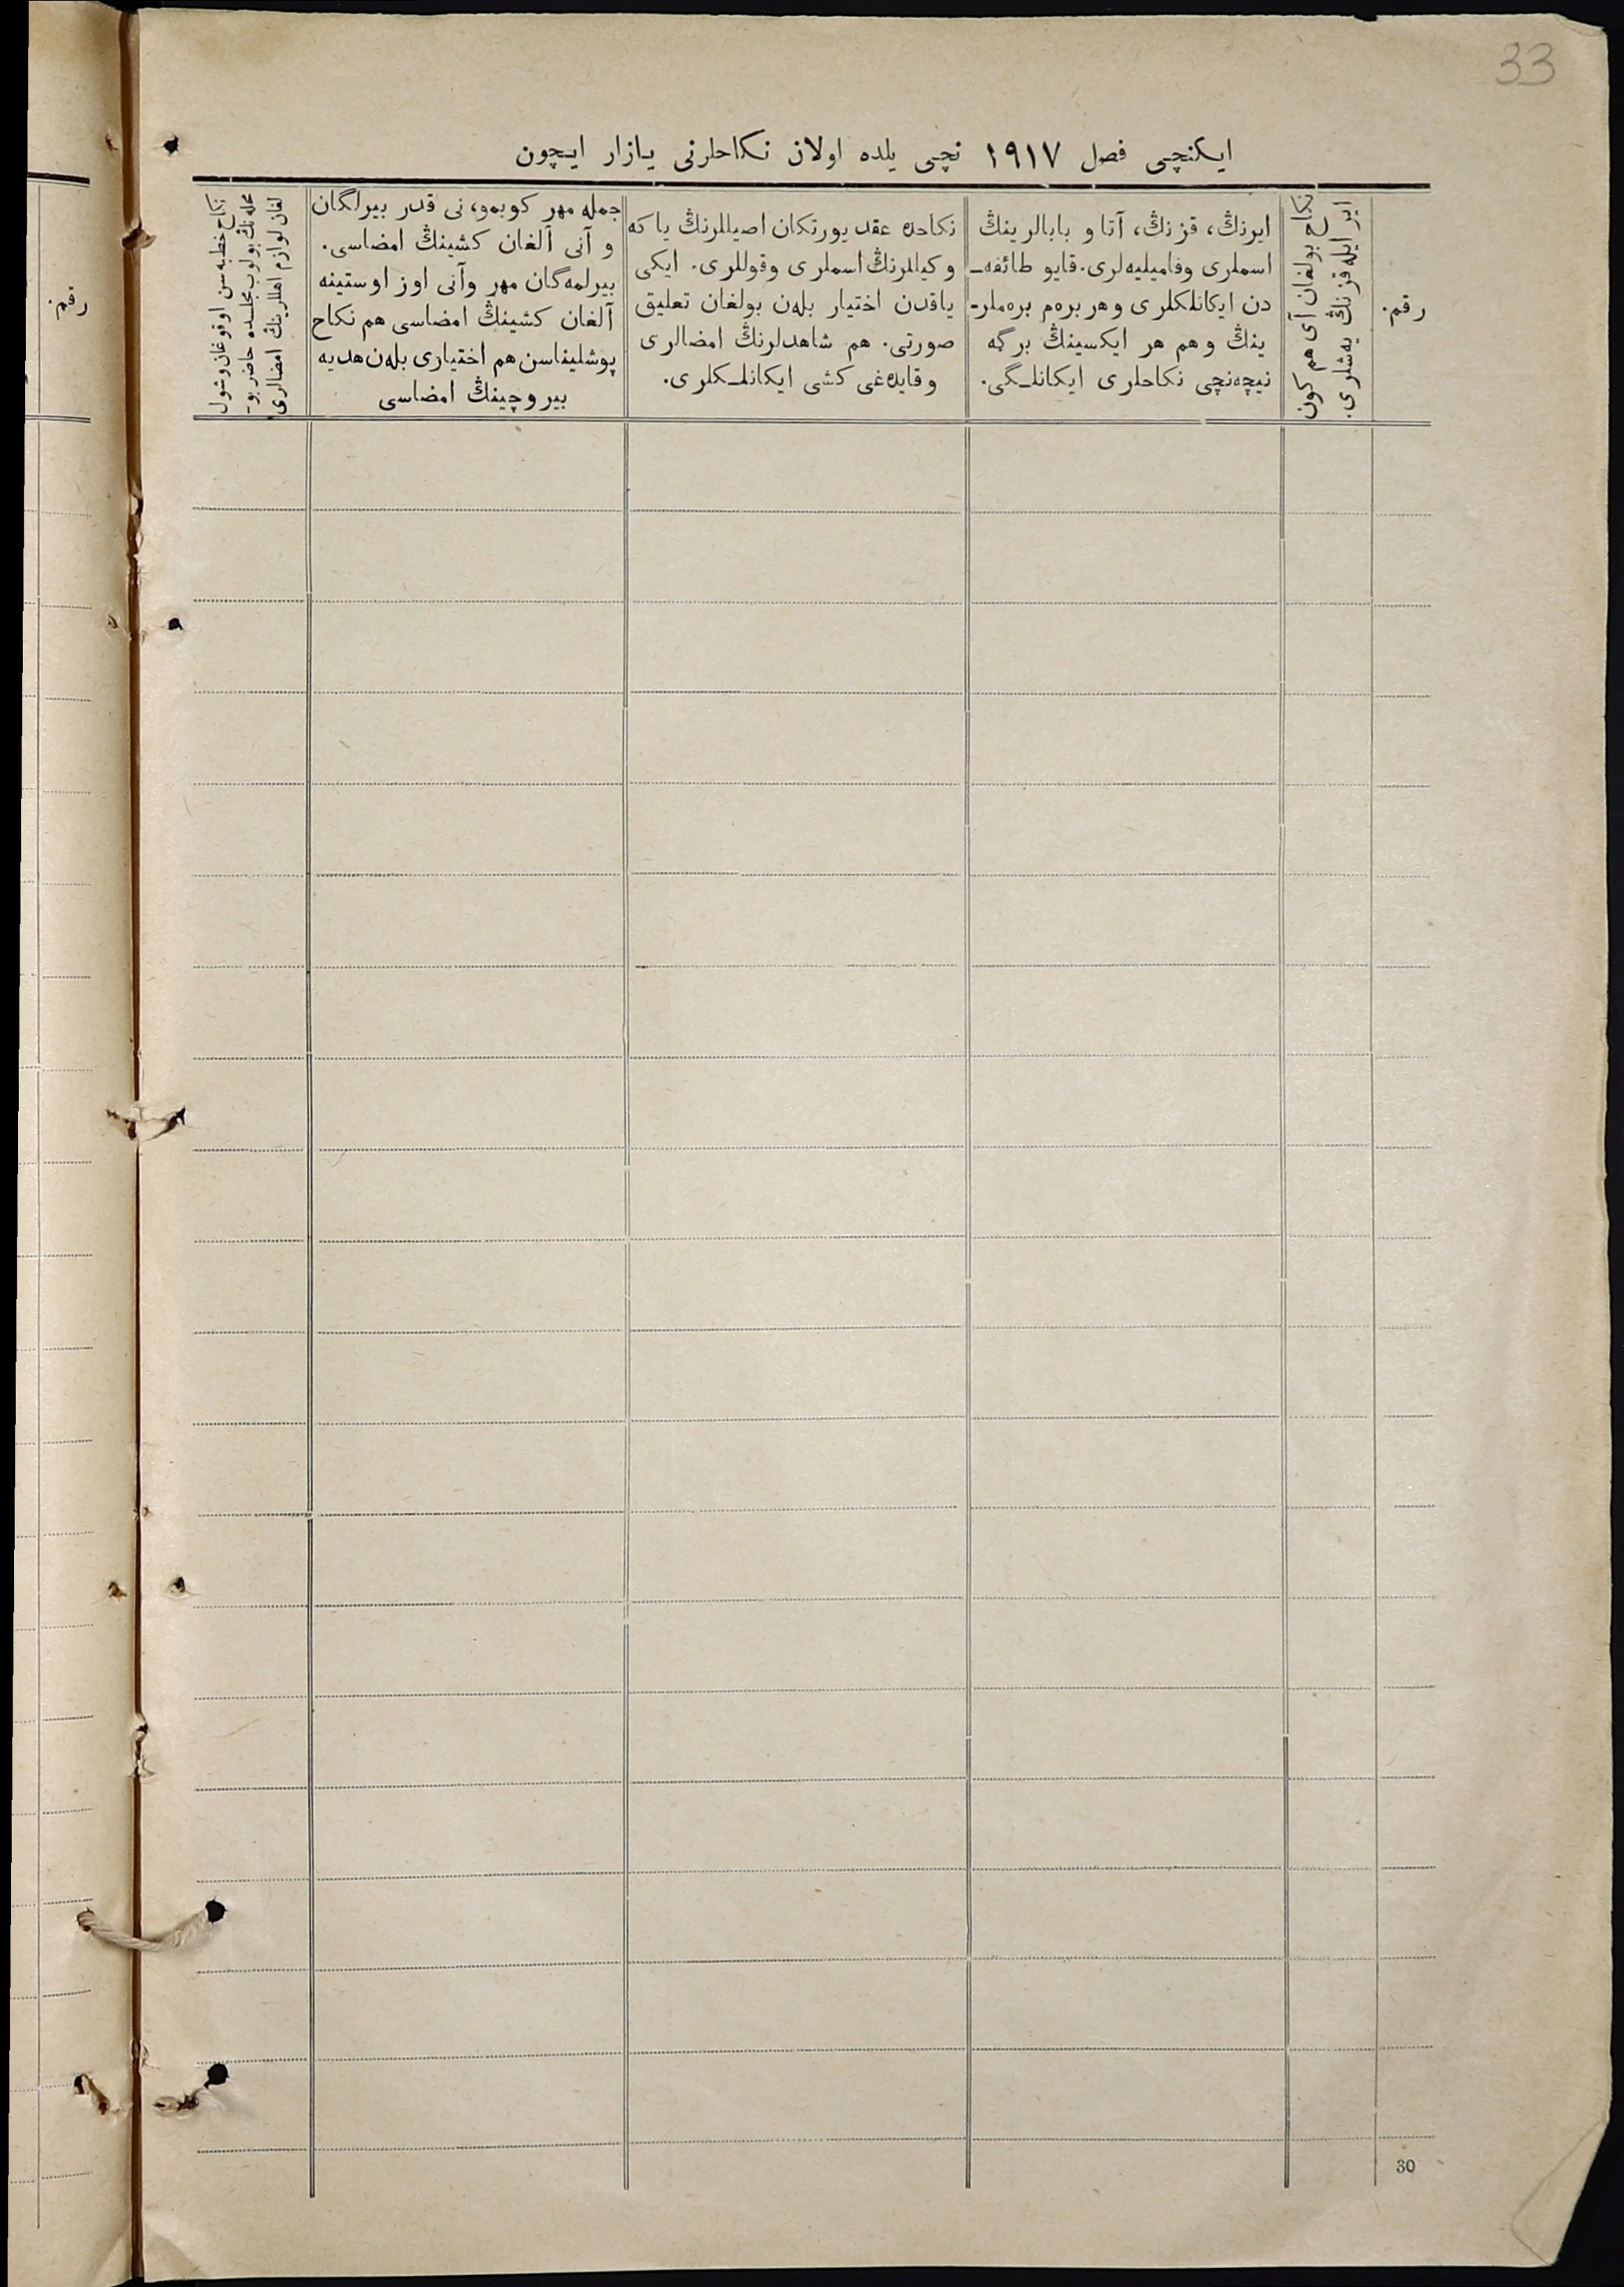 33
ایکنچی فصل ١٩١٧ نچی یلده اولان نکاحلرنی یازار ایچون
رقم.
نکاح بولغان آی هم کون
ایر ایله قزنڭ یه‌شلری.
ایرنڭ، قزنڭ، آتا و بابالرینڭ
اسملری وفامیلیه‌لری. قایو طائفه‌ـ
دن ایکانلکلری وهر بره‌م بره‌ملر-
ینڭ وهم هر ایکسینڭ برگه
نیچه‌نچی نکاحلری ایکانلـگی.
نکاحده عقد یورتکان اصیللرنڭ یا که
وکیللرنڭ اسملری وقوللری. ایکی
یاقدن اختیار بله‌ن بولغان تعلیق
صورتی. هم شاهدلرنڭ امضالری
وقایده‌غی کشی ایکانلـکلری.
جمله مهر کوبمو، نی قدر بیرلگان
و آنی آلغان کشینڭ امضاسی.
بیرلمه‌گان مهر وآنی اوز اوستینه
آلغان کشینڭ امضاسی هم نکاح
پوشلیناسن هم اختیاری بله‌ن هدیه
بیروچینڭ امضاسی
نکاح خطبه سن اوقوغان وشول
محله‌نڭ بولوب مجلسده حاضر بو-
لغان لوازم اهللرینڭ امضالری
رقم.
30